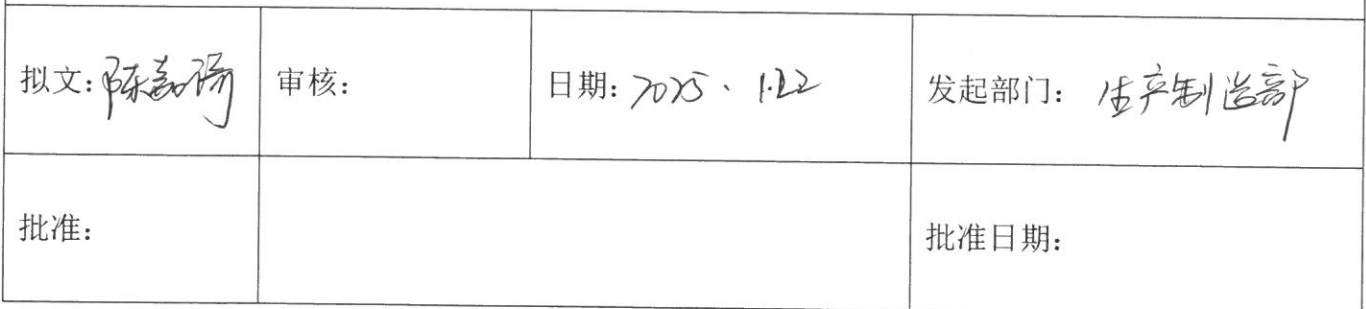 拟文:陈嘉琦 审核: 日期:2025、1.22 发起部门:生产制造部
批准: 批准日期: